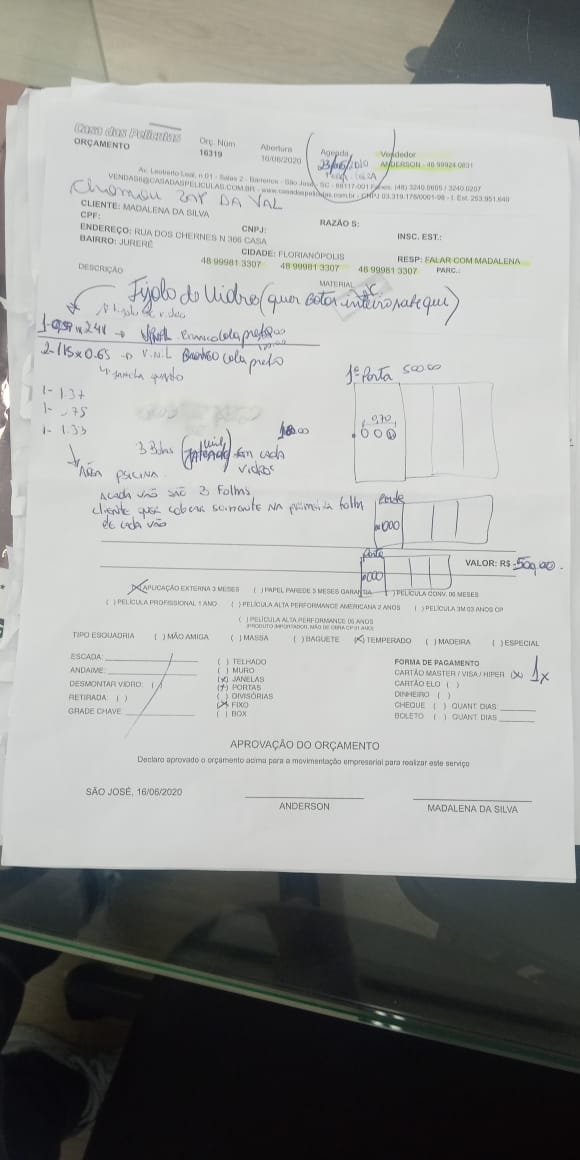 Casa das Películas
ORÇAMENTO
Orç. Núm
16319
Abertura
16/06/2020
Agenda
Vendedor
ANDERSON - 48 99924 0831
Av. Leoberto Leal, n.01 - Salas 2 - Barreiros - São José - SC - 88117-001 Fones: (48) 3240.0605 / 3240.0207
VENDAS6@CASADASPELICULAS.COM.BR - www.casadaspeliculas.com.br - CNPJ 03.319.176/0001-98 - I. Est. 253.951.649
Chamou ZAP DA VAL
CLIENTE: MADALENA DA SILVA
CPF:
CNPJ:
RAZÃO S:
ENDEREÇO: RUA DOS CHERNES N 366 CASA
INSC. EST.:
BAIRRO: JURERÊ
CIDADE: FLORIANÓPOLIS
RESP: FALAR COM MADALENA
48 99981 3307 48 99981 3307 48 99981 3307 PARC.:
DESCRIÇÃO
MATERIAL
Tijolo de Vidro (quer botar inteiro
de vidro
VINIL Branco cola preto
2-115x0.65 → VINIL Branco cola preto
1- 1.37
1- .75
1- 1.33
1ª Porta 500.00
0,70
3 Bolas em cada
vidros
ÁREA PISCINA
Acada vão são 3 Folhas
cliente quer colocar somente NA primeira folha
de cada vão
VALOR: R$ 500,00.
(X) APLICAÇÃO EXTERNA 3 MESES ( ) PAPEL PAREDE 3 MESES GARANTIA ( ) PELÍCULA CONV. 06 MESES
( ) PELÍCULA PROFISSIONAL 1 ANO ( ) PELÍCULA ALTA PERFORMANCE AMERICANA 2 ANOS ( ) PELÍCULA 3M 03 ANOS CP
( ) PELÍCULA ALTA PERFORMANCE 05 ANOS
(PRODUTO IMPORTADOR, MÃO DE OBRA CP 01 ANO)
TIPO ESQUADRIA ( ) MÃO AMIGA ( ) MASSA ( ) BAGUETE (X) TEMPERADO ( ) MADEIRA ( ) ESPECIAL
ESCADA:
ANDAIME:
DESMONTAR VIDRO: ( )
RETIRADA: ( )
GRADE CHAVE:
( ) TELHADO
( ) MURO
(X) JANELAS
(X) PORTAS
( ) DIVISÓRIAS
(X) FIXO
( ) BOX
FORMA DE PAGAMENTO
CARTÃO MASTER / VISA / HIPER (X) 1x
CARTÃO ELO ( )
DINHEIRO ( )
CHEQUE ( ) QUANT. DIAS:
BOLETO ( ) QUANT. DIAS
APROVAÇÃO DO ORÇAMENTO
Declaro aprovado o orçamento acima para a movimentação empresarial para realizar este serviço
SÃO JOSÉ, 16/06/2020
ANDERSON
MADALENA DA SILVA